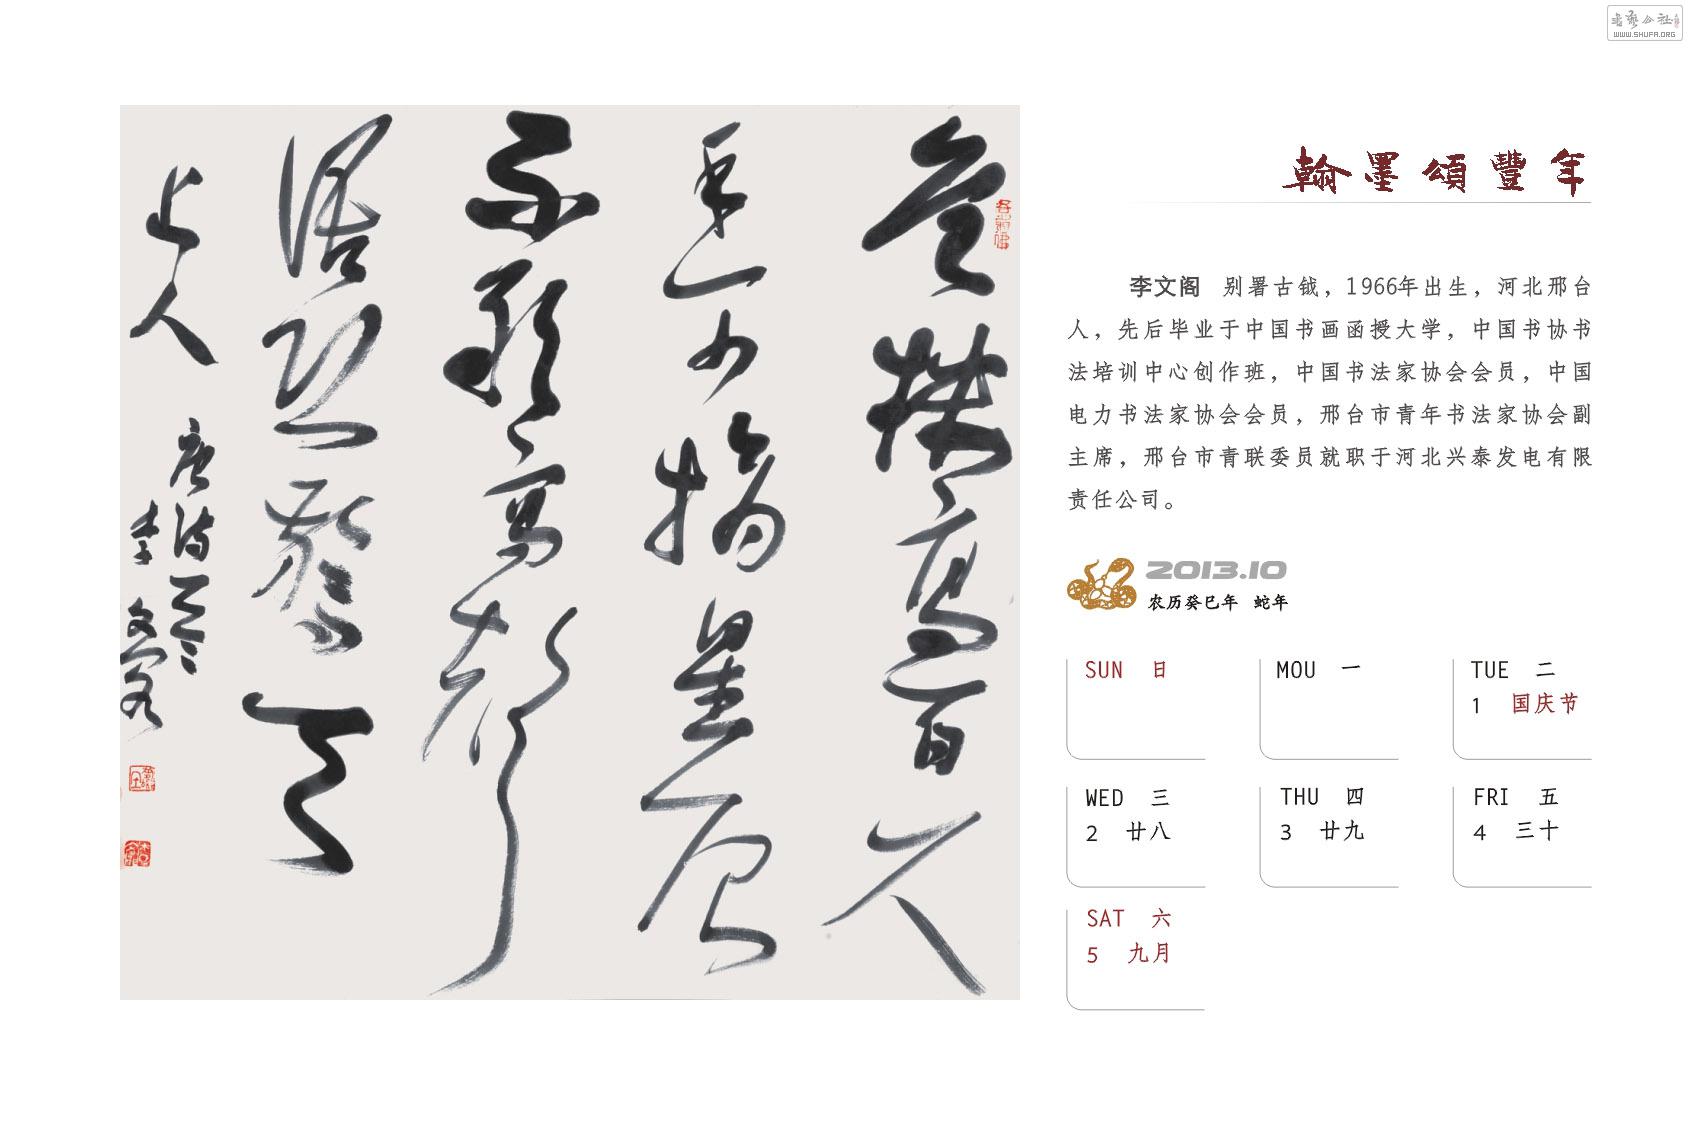 书艺公社
WWW.SHUFA.ORG
翰墨頌豐年
危樓高百尺
手可摘星辰
不敢高聲
語恐驚天
上人
唐诗
李文阁
李文阁 别署古钺，1966年出生，河北邢台
人，先后毕业于中国书画函授大学，中国书协书
法培训中心创作班，中国书法家协会会员，中国
电力书法家协会会员，邢台市青年书法家协会副
主席，邢台市青联委员就职于河北兴泰发电有限
责任公司。
2013.10
农历癸巳年 蛇年
SUN 日
MOU 一
TUE 二
1 国庆节
WED 三
2 廿八
THU 四
3 廿九
FRI 五
4 三十
SAT 六
5 九月